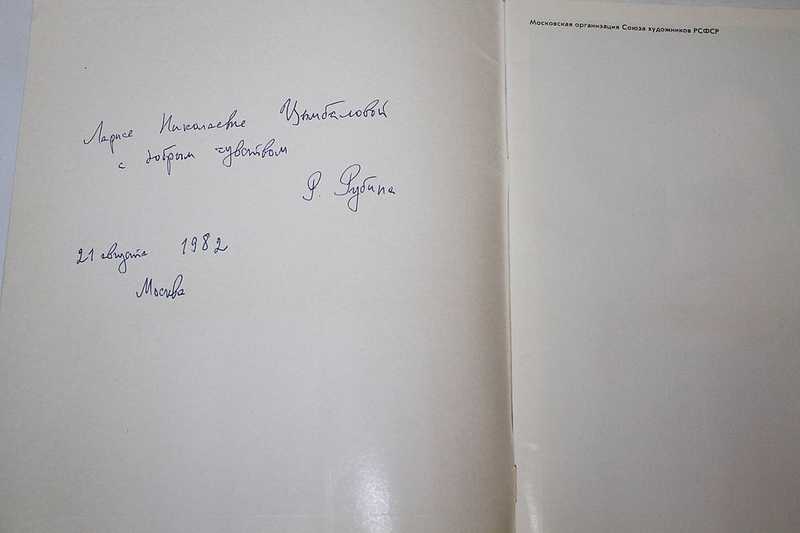 Ларисе Николаевне Цымбаловой
с добрым чувством
Р. Рубина
21 августа 1982
Москва
Московская организация Союза художников РСФСР